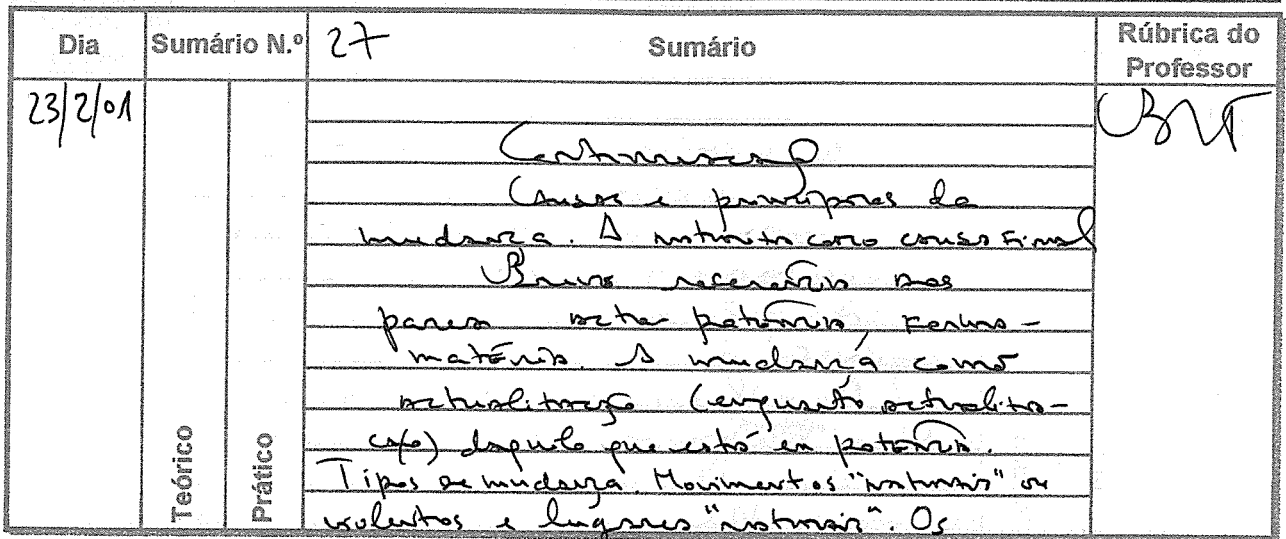 Dia Sumário N.º 27 Sumário Rúbrica do Professor
23/2/01
Continuação
Causas e princípios da
mudança. A natureza como causa final
Breve referência aos
pares acto-potência, forma-
matéria. A mudança como
actualização (enquanto actualiza-
ção) daquilo que está em potência.
Tipos de mudança. Movimentos "naturais" ou
violentos e lugares "naturais". Os
Teórico
Prático